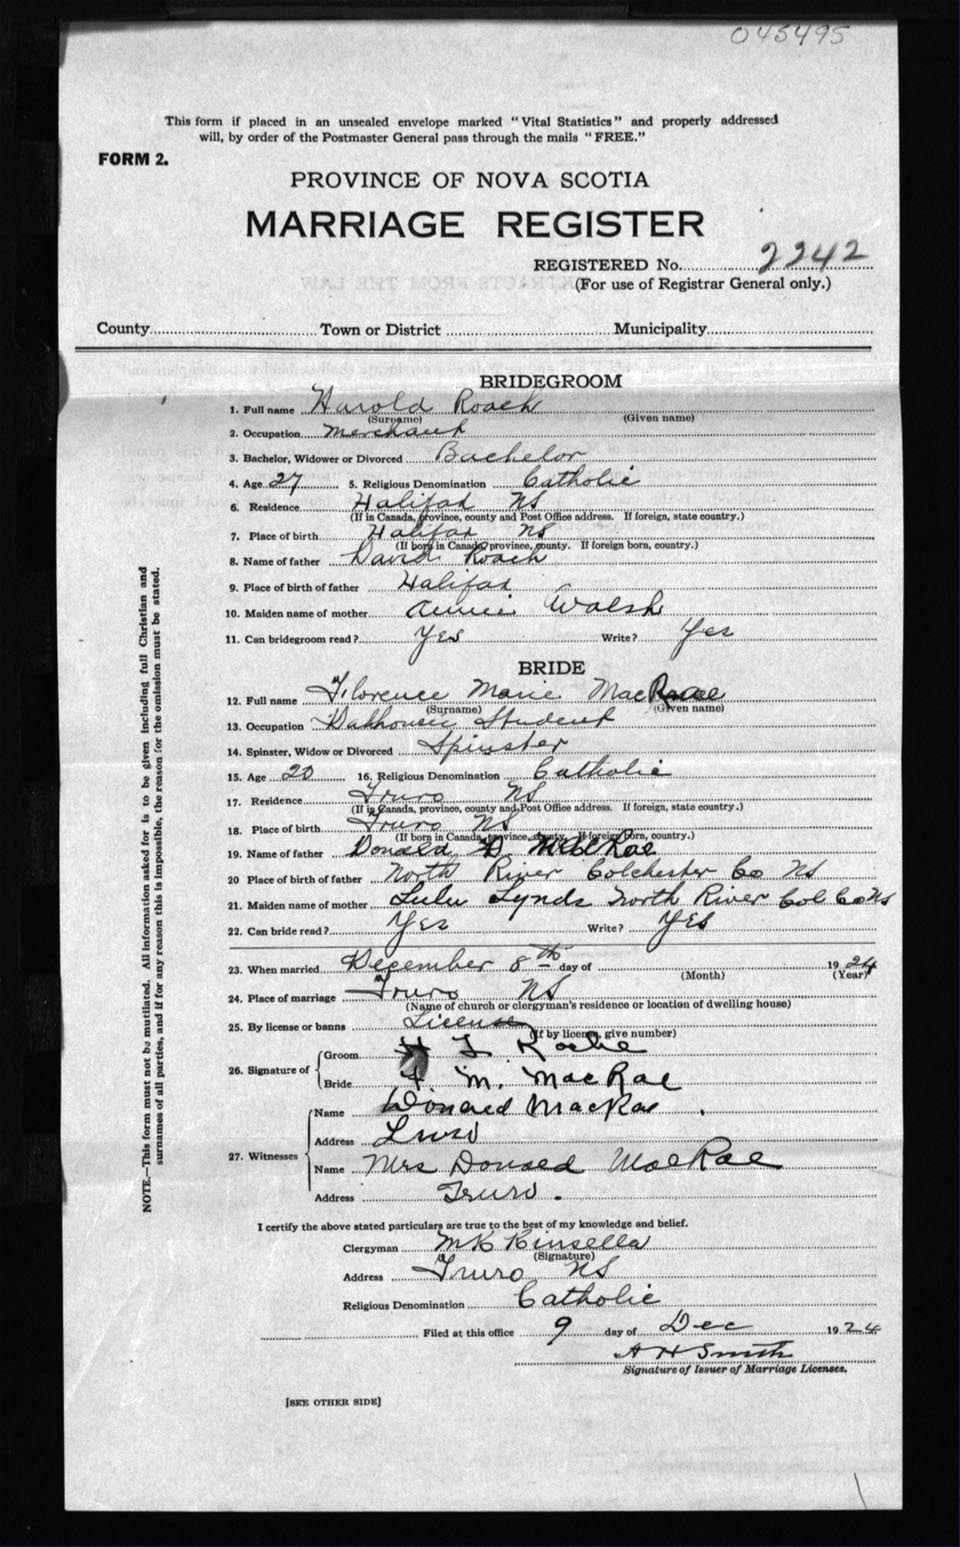 045495
This form if placed in an unsealed envelope marked "Vital Statistics" and properly addressed
will, by order of the Postmaster General pass through the mails "FREE."
FORM 2.
PROVINCE OF NOVA SCOTIA
MARRIAGE REGISTER
REGISTERED No. 2242
(For use of Registrar General only.)
County Town or District Municipality
BRIDEGROOM
1. Full name Harold Roach
(Surname) (Given name)
2. Occupation Merchant
3. Bachelor, Widower or Divorced Bachelor
4. Age 27 5. Religious Denomination Catholic
6. Residence Halifax NS
(If in Canada, province, county and Post Office address. If foreign, state country.)
7. Place of birth Halifax NS
(If born in Canada, province, county. If foreign born, country.)
8. Name of father David Roach
9. Place of birth of father Halifax
10. Maiden name of mother Annie Walsh
11. Can bridegroom read? Yes Write? Yes
BRIDE
12. Full name Florence Marie MacRae
(Surname) (Given name)
13. Occupation Dalhousie Student
14. Spinster, Widow or Divorced Spinster
15. Age 20 16. Religious Denomination Catholic
17. Residence Truro NS
(If in Canada, province, county and Post Office address. If foreign, state country.)
18. Place of birth Truro NS
(If born in Canada, province, county. If foreign born, country.)
19. Name of father Donald D McRae
20 Place of birth of father North River Colchester Co NS
21. Maiden name of mother Lulu Lynds North River Col Co NS
22. Can bride read? Yes Write? Yes
23. When married December 8th day of 1924
(Month) (Year)
24. Place of marriage Truro NS
(Name of church or clergyman's residence or location of dwelling house)
25. By license or banns License
(If by license, give number)
26. Signature of Groom H L Roche
Bride F. M. MacRae
27. Witnesses Name Donald MacRae
Address Truro
Name Mrs Donald MacRae
Address Truro.
I certify the above stated particulars are true to the best of my knowledge and belief.
Clergyman MK Kinsella
(Signature)
Address Truro NS
Religious Denomination Catholic
Filed at this office 9 day of Dec 1924
A H Smith
Signature of Issuer of Marriage Licenses.
[SEE OTHER SIDE]
NOTE.—This form must not be mutilated. All information asked for is to be given including full Christian and
surnames of all parties, and if for any reason this is impossible, the reason for the omission must be stated.